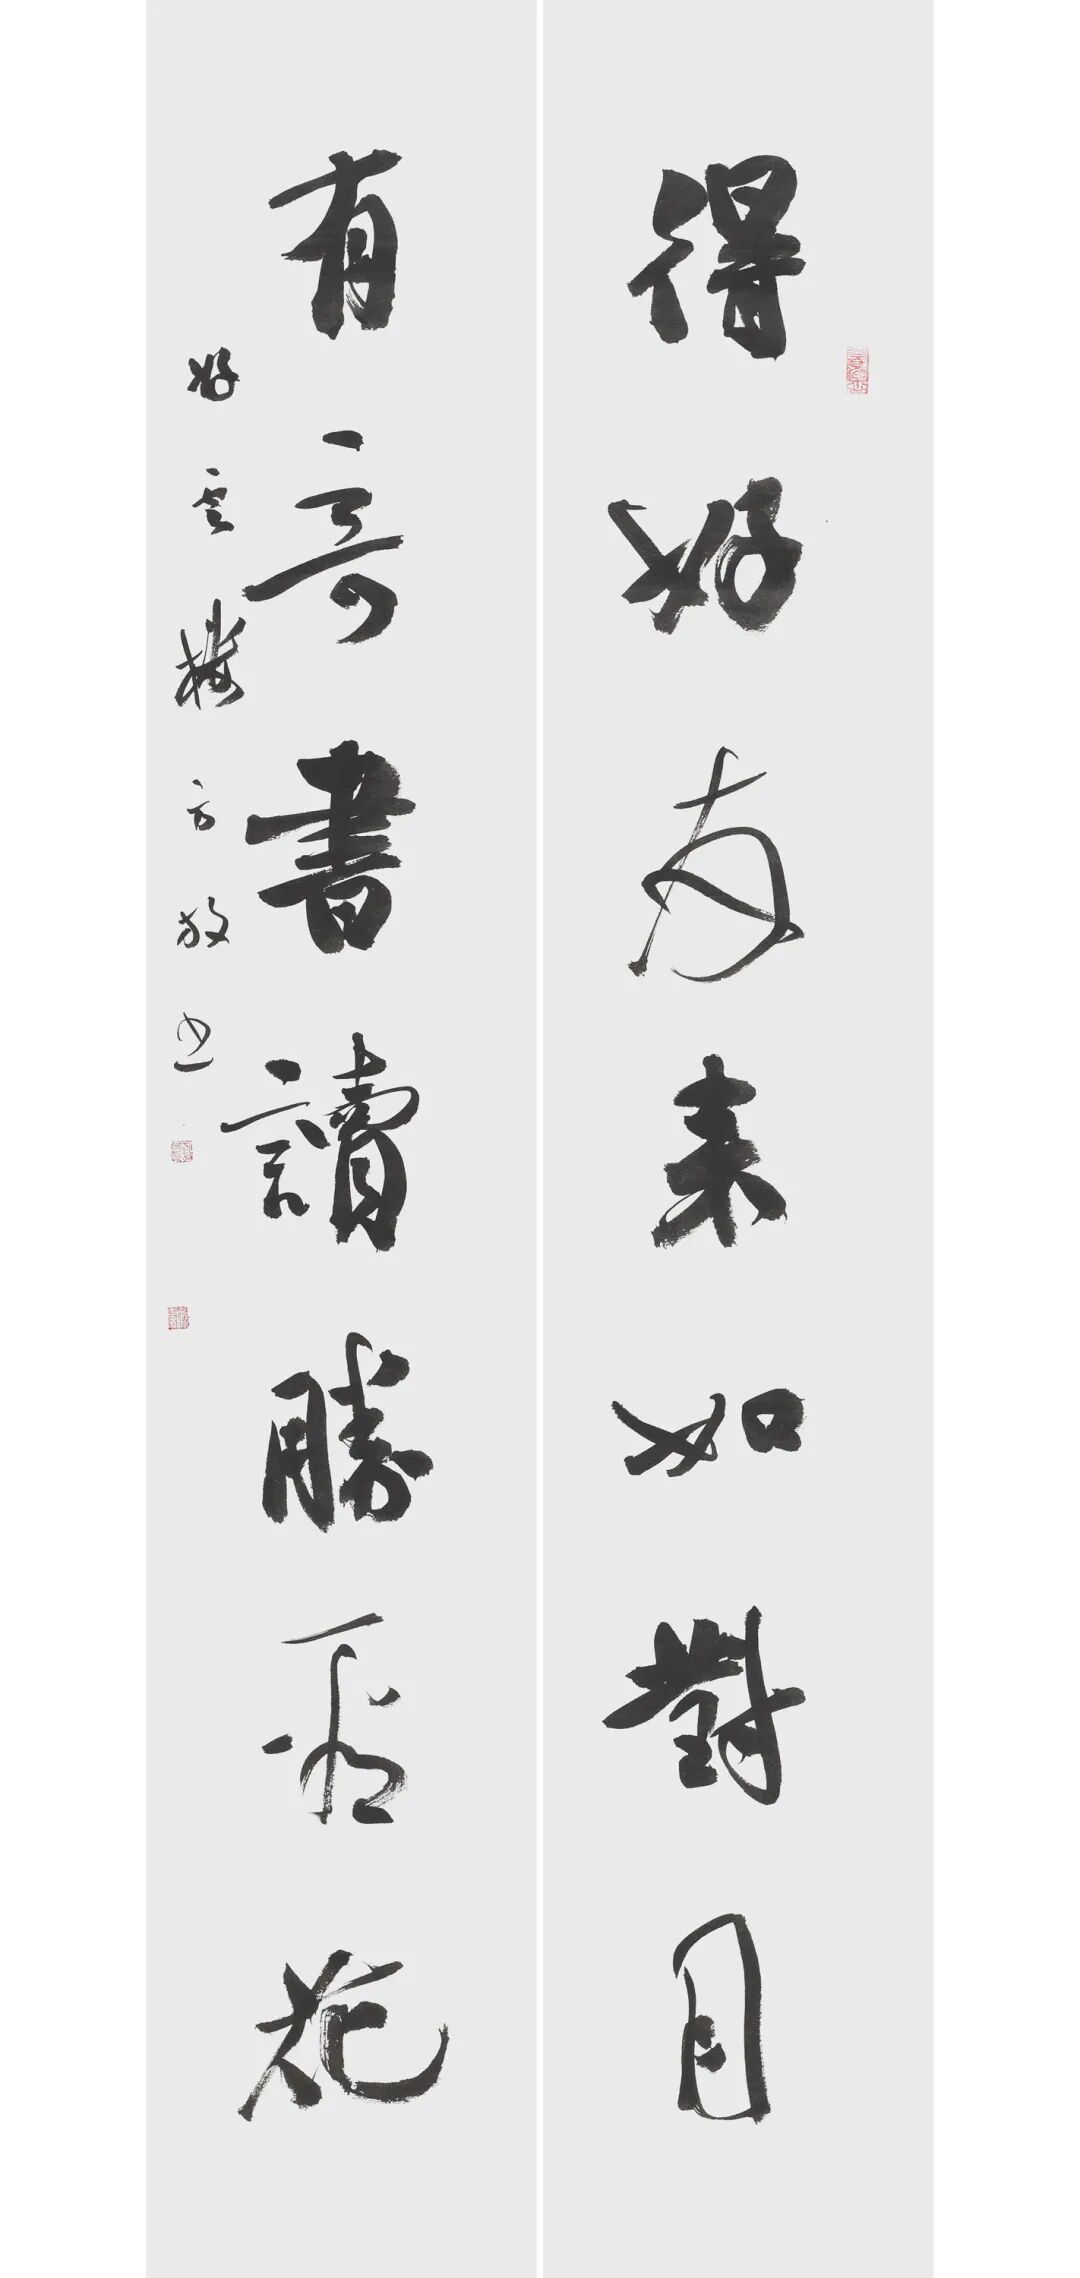 得好友来如對月
有奇書讀勝看花
好雲樓方放书